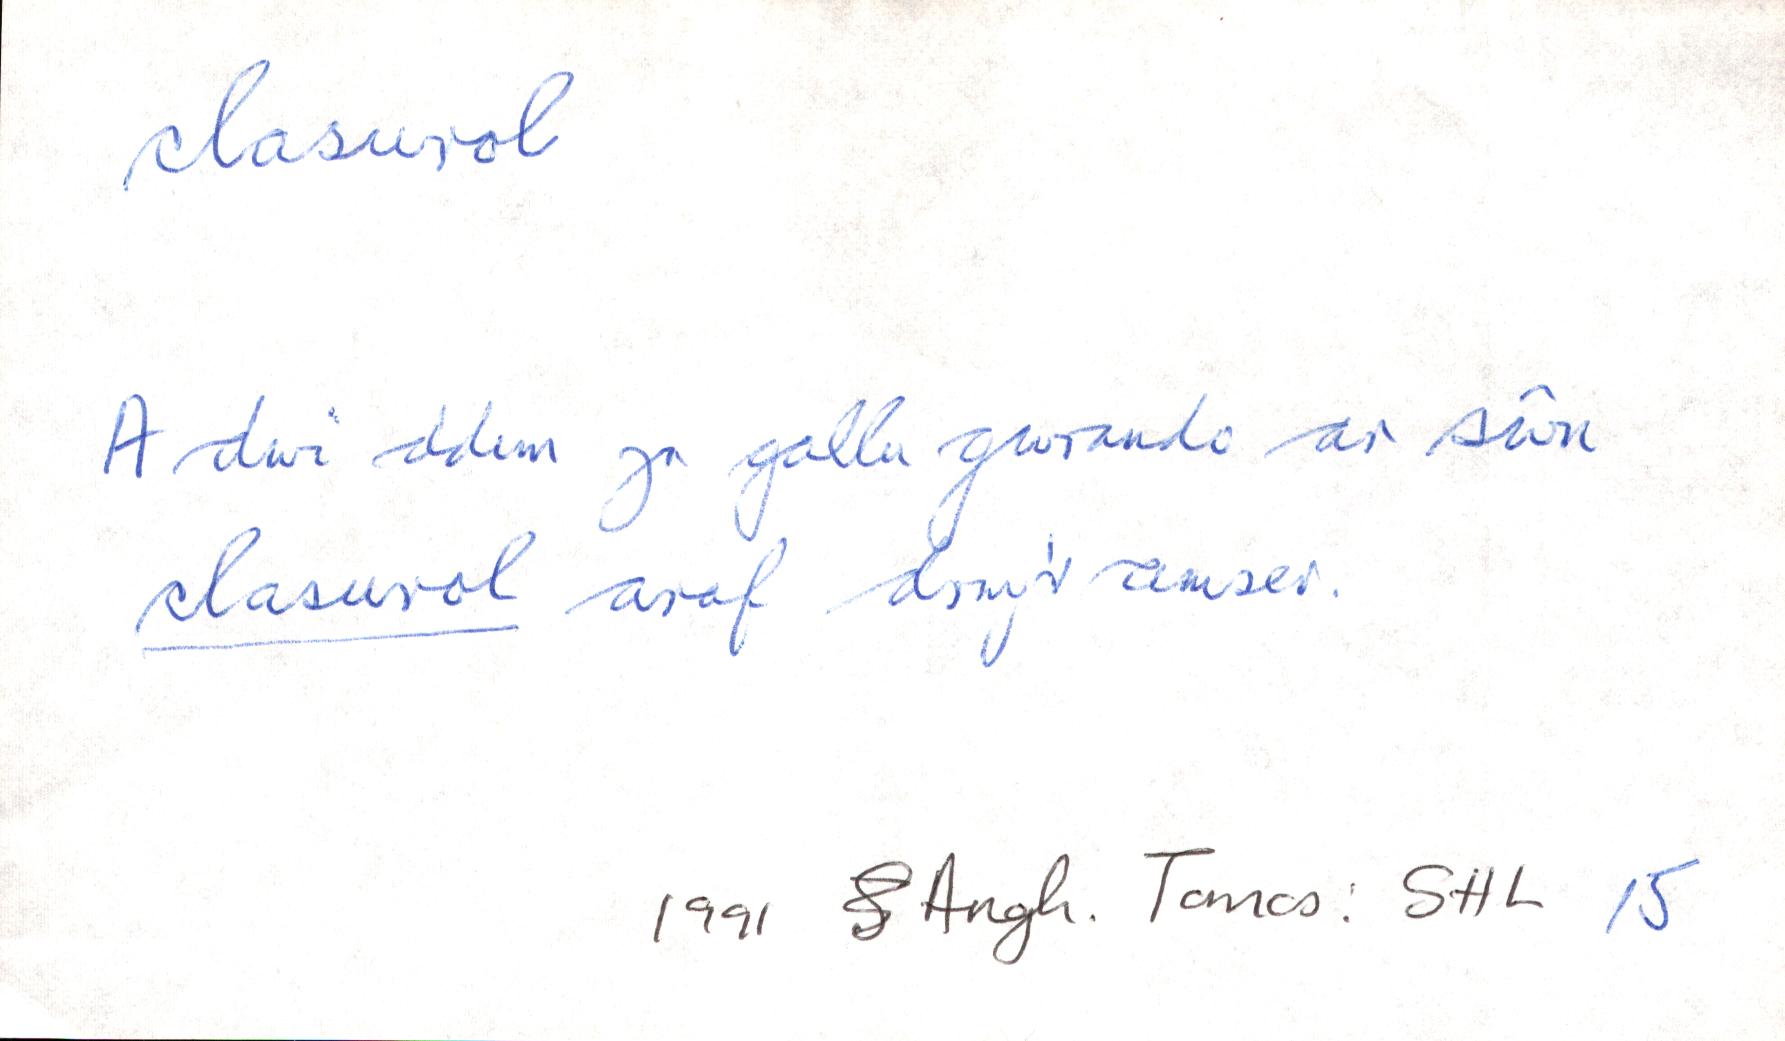 clasurol
A dwi ddim yn gallu gwrando ar sŵn
clasurol araf drwy'r amser.
1991 Angh. Tomos: SHL 15